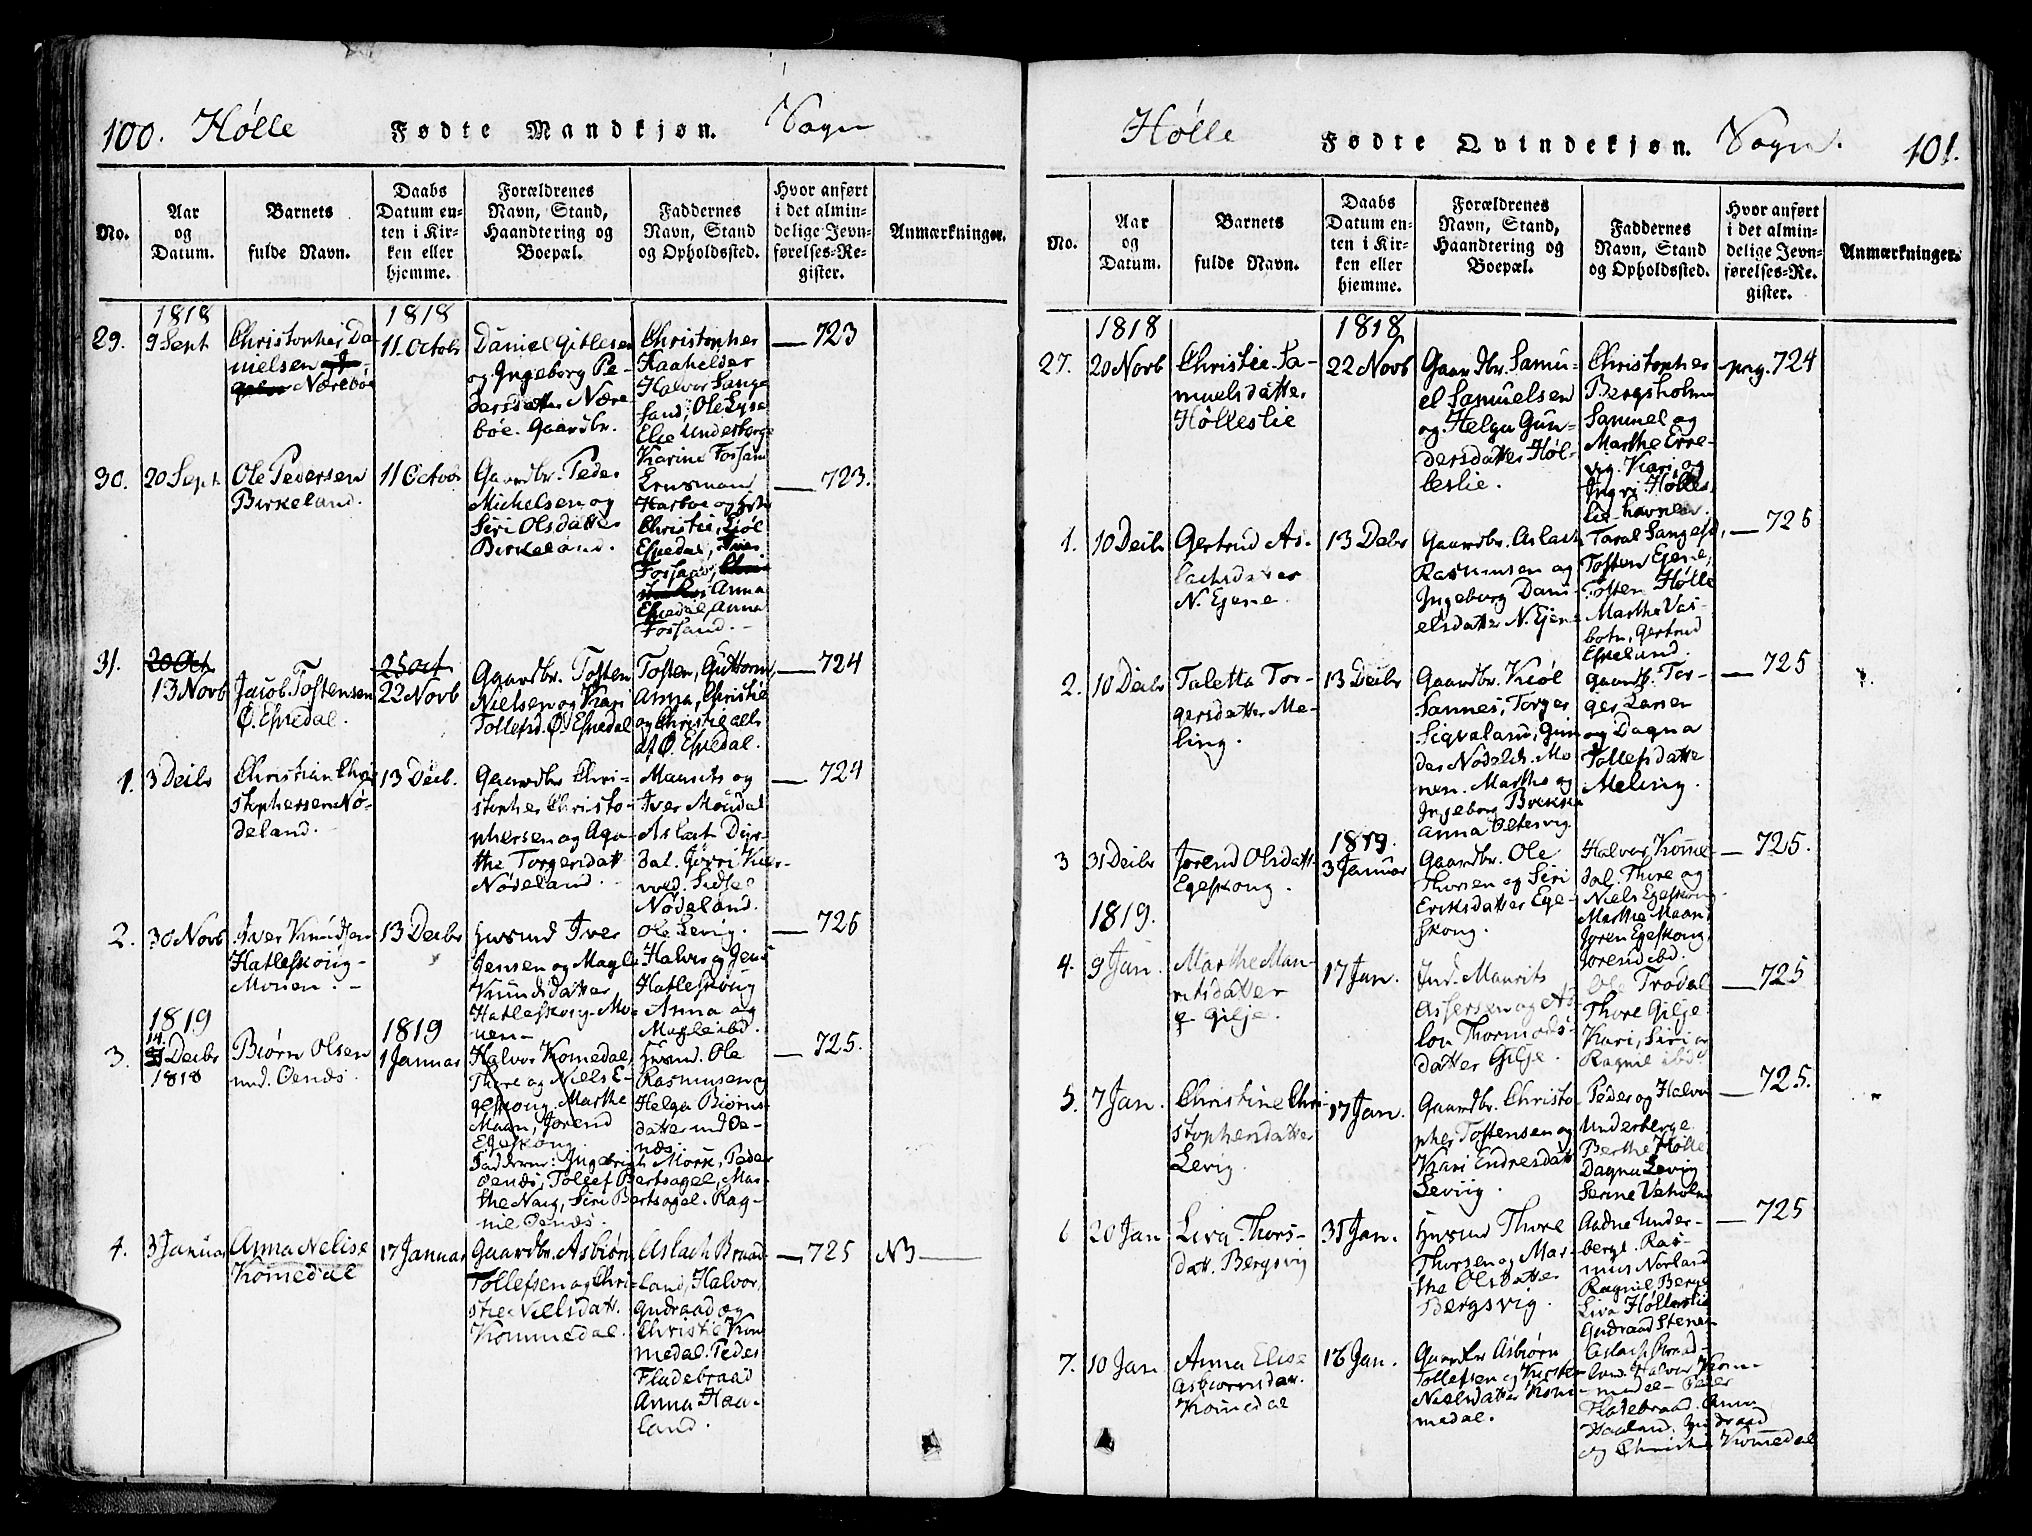 100. Hølle Fødte Mandkjøn. Sogn
No.
Aar
og
Datum.
Barnets
fulde Navn.
Daabs
Datum en-
ten i Kir-
ken eller
hjemme.
Forældrenes
Navn, Stand,
Haandtering og
Boepæl.
Faddernes
Navn, Stand
og Opholdssted.
Hvor anført
i det almin-
delige Jevn-
førelses-Re-
gister.
Anmærkninger.
1818
29.
9 Sept
Christopher Da
nielsen
Nærebøe
1818
11 Octobr
Daniel Gitlesen
og Ingeborg Pe-
dersdatter Nære
bøe. Gaardbr.
Christopher
Haahelder
Halvor Sange
sand, Ole Lyse
Else Underberge
Karine Fossan
723
30.
20 Sept.
Ole Pedersen
Birkeland.
11 Octobr
Gaardbr. Peder
Michelsen og
Siri Olsdatter
Birkeland.
Lensmand
Harboe og
Christie, Kiøl
Espedal,
Fossan,
Anna
Espedal, Anna
Fossand.
723.
31.
20 Oct
13 Novb
Jacob Tostensen
Ø. Espedal.
25 Oct
22 Novb
Gaardbr. Tosten
Nielsen og Kari
Tollefsd. Ø. Espedal
Tosten, Guttorm,
Anna, Christie
og Christie alle
af Ø. Espedal.
724
1.
3 Deibr
Christian Chri
stophersen Nø-
deland.
13 Deib.
Gaardbr. Chri-
stopher Christo-
phersen og Aga-
the Torgersdatt
Nødeland.
Maurits og
Iver Moudal
Aslach Dyr-
dal. Jørri Kier-
vold. Sidsel
Nødeland.
724
2.
30 Novb
Iver Knudsen
Hatleskong-
Mouen.
13 Deibr
Huusmd Iver
Jensen og Magle
Knudsdatter
Hatleskong-Mo
uen-
Ole Levig.
Halvor og Jens
Hatleskong
Anna og
Magle ibd.
725
1819
3.
14
31 Deibr
1818
Biørn Olsen
und. Oenæs.
1819
1 Januar
Halvor Komedal,
Thore og Niels E-
geskong. Marthe
Maan, Jorend
Egeskong.
Fadderne: Ingebrigt Mørk, Peder
Oenæs, Tollef Bertsagel, Mar-
the Naug, Siri Bertsagel. Rag-
nil Oenæs.
Husmd. Ole
Rasmusen og
Helga Biørns-
datter und Oe-
næs.
725.
4.
3 Januar
Anna Nelise
Komedal
17 Januar
Gaardbr. Asbiørn
Tollefsen og Chri-
stie Nielsdatt.
Kommedal.
Aslach Braad-
land, Halvor,
Gudraad og
Christie Kom
medal. Peder
Fladebraad
Anna Haa-
land.
725
NB
Hølle Fødte Qvindekjøn. Sogn. 101.
No.
Aar
og
Datum.
Barnets
fulde Navn.
Daabs
Datum en-
ten i Kir-
ken eller
hjemme.
Forældrenes
Navn, Stand,
Haandtering og
Boepæl.
Faddernes
Navn, Stand
og Opholdssted.
Hvor anført
i det almin-
delige Jevn-
førelses-Re-
gister.
Anmærkninger.
1818
27.
20 Novb
Christie Sa-
muelsdatter
Hølleslie
1818
22 Novb
Gaardbr. Samu-
el Samuelsen
og Helga Gun-
dersdatter Høl-
leslie.
Christopher
Bergsholm
Samuel og
Marthe Erre-
vig. Kari og
Ingri Hølles-
lie-havnen.
pag. 724
1.
10 Deibr
Gertrud As-
lachsdatter
N. Ejene.
13 Debr
Gaardbr. Aslach
Rasmusen og
Ingeborg Dani-
elsdatter N. Ejene
Taral Sangesd,
Tosten Ejene,
Tosten Hølle
Marthe Vas-
botn, Gertrud
Espeland.
725
2.
10 Deibr
Taletta Tor-
gersdatter Me-
ling.
13 Deibr
Gaardbr. Kiøl
Sannes, Torger
Sigvaland, Gun
der Nødeld. Mo
nen. Marthe og
Ingeborg Brekke
Anna Oltesvig.
Gaardb. Tor-
ger Larsen
og Dagna
Tollefsdatter
Meling.
725
3
31 Deibr
Jorend Olsdatt
Egeskong.
1819.
3 Januar
Gaardbr. Ole
Thorsen og Siri
Eriksdatter Ege-
skong.
Halvor Komme-
dal, Thore og
Niels Egeskong
Marthe Maan
Joren Egeskong,
Jorend ibd.
725.
1819.
4.
9 Jan.
Marthe Mau-
ritsdatter
Gilje.
17 Jan.
Ind. Maurits
Assersen og As
lou Thormods-
datter Gilje.
Ole Trodal
Thore Gilje
Kari, Siri og
Ragnil ibd
725
5.
7 Jan.
Christine Chri-
stophersdatter
Levig.
17 Jan.
Gaardbr. Christo-
pher Tostensen og
Kari Endresdatt
Leviig.
Peder og Halvor
Underberge.
Berthe Hølle
Dagna Levig
Serine Veholm
725.
6
20 Jan
Liva Thors-
datt. Bergsvig
31 Jan.
Husmd Thore
Thorsen og Mar-
the Olsdatter
Bergsvig.
Aadne Under-
berge. Ras-
mus Norland
Ragnil Berge
Liva Høllaslie
Gudraad Stenen
725
7.
10 Jan
Anna Elise
Asbiornsdatt.
Komedal
16 Jan.
Gaardbr Asbiørn
Tollefsen og Kirste
Nielsdatter Kom
medal.
Aslach Braad-
land. Halvor Kom-
medal- Peder
Fladebraad. Anna
Haaland. Gudraad
og Christie Komedal